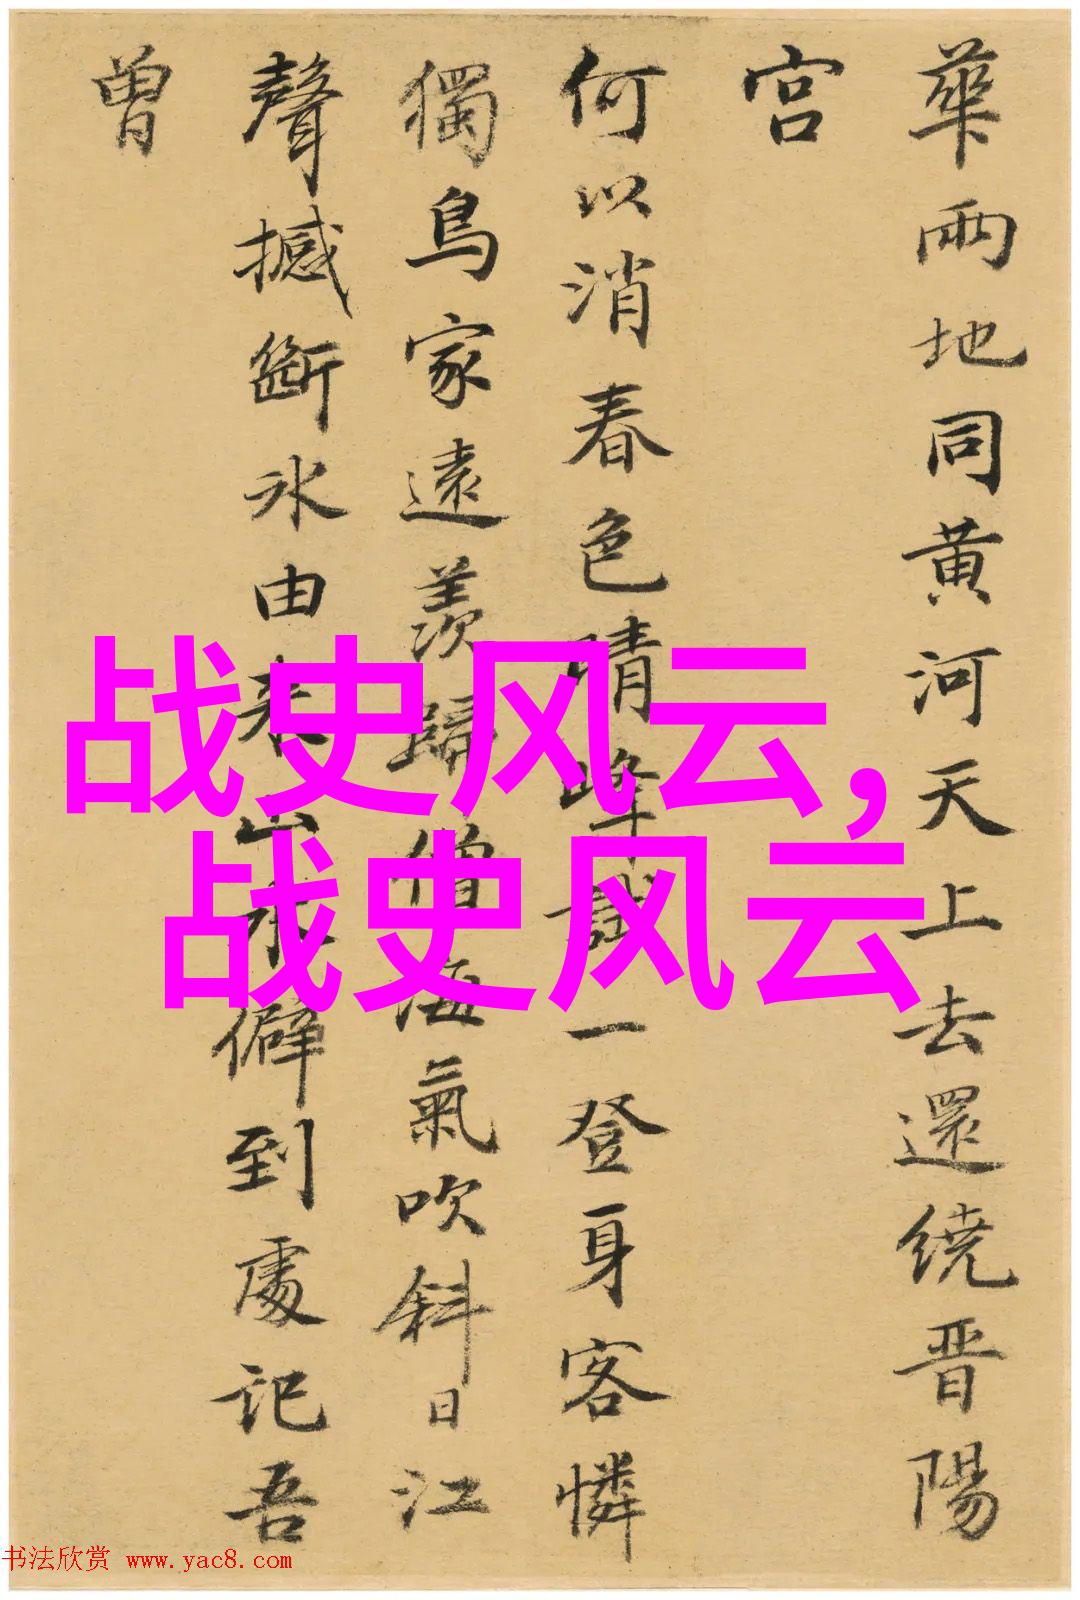 華兩地同黄河天上去還繞晋陽
宫
何以消春色晴峰試一登身客憐
獨鳥家遠羨歸僧海氣吹斜日江
聲撼斷冰由来山水僻到處记吾
曾
战史风云,
战史风云
书法欣赏 www.yac8.com